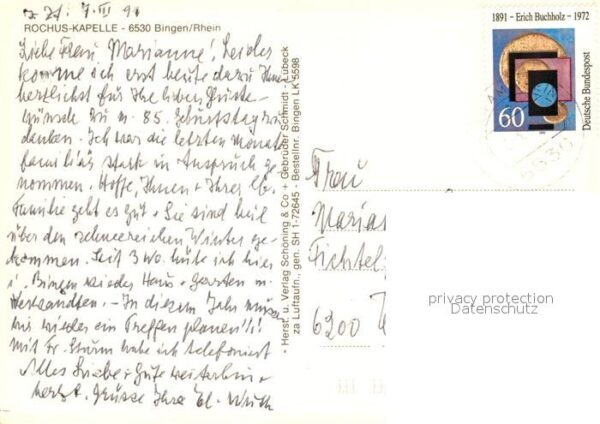 z. Zt. 7. III 91
ROCHUS-KAPELLE - 6530 Bingen/Rhein
Liebe Frau Marianne! Leider
komme ich erst heute dazu Ihnen
herzlichst für Ihre lieben Grüße +
Wünsche zu m. 85. Geburtstag zu
danken. Ich war die letzten Monate
familiär stark in Anspruch ge-
nommen. Hoffe, Ihnen + Ihrer lb.
Familie geht es gut + Sie sind heil
über den schneereichen Winter ge-
kommen. Seit 3 Wo. hüte ich hier
i. Bingen wieder Haus + Garten m.
Verwandten. - In diesem Jahr müssen
wir wieder ein Treffen planen!!!
Mit Fr. Sturm habe ich telefoniert
Alles Liebe + Gute weiterhin +
herzl. Grüsse Ihre El.
• Herst. u. Verlag Schöning & Co + Gebrüder Schmidt - Lübeck
za Luftaufn., gen. SH 1-72645 - Bestellnr. Bingen LK 5598
1891 - Erich Buchholz - 1972
60
Deutsche Bundespost
6530
Frau
Marian
Fichtel
6200
privacy protection
Datenschutz